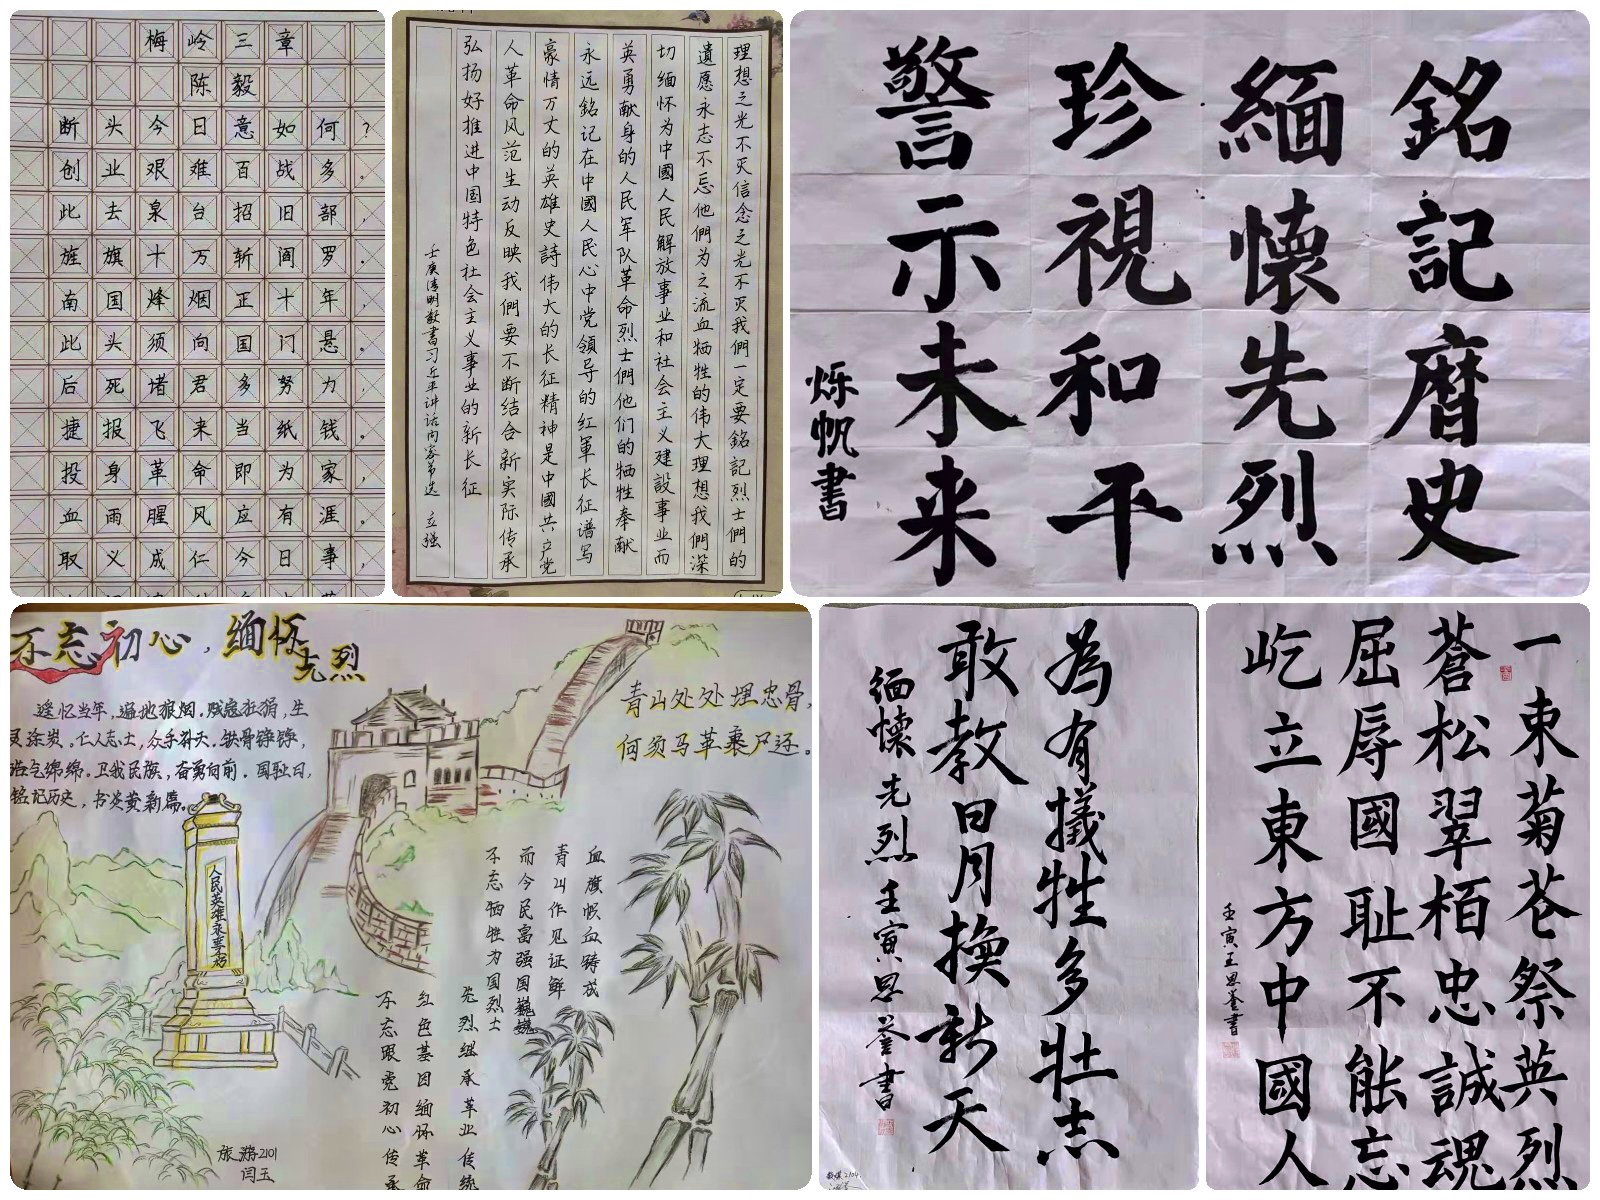 梅岭三章
陈毅
断头今日意如何？
创业艰难百战多。
此去泉台招旧部，
旌旗十万斩阎罗。
南国烽烟正十年，
此头须向国门悬。
后死诸君多努力，
捷报飞来当纸钱。
投身革命即为家，
血雨腥风应有涯。
取义成仁今日事，
理想之光不灭信念之光不灭我們一定要銘記烈士們的
遺愿永志不忘他們为之流血牺牲的伟大理想我們深
切缅怀为中國人民解放事业和社会主义建設事业而
英勇献身的人民军队革命烈士們他们的牺牲奉献
永远銘记在中國人民心中党领导的红軍长征谱写
豪情万丈的英雄史詩伟大的长征精神是中國共产党
人革命风范生动反映我們要不断结合新实际传承
弘扬好推进中国特色社会主义事业的新长征
清明敬書习近平讲话内容节选 立强
銘記曆史
緬懷先烈
珍視和平
警示未来
烁帆書
不忘初心，缅怀先烈
遥忆当年，遍地狼烟。残寇狂狷，生
灵涂炭。仁人志士，众手擎天。铁骨铮铮，
浩气绵绵。卫我民族，奋勇向前。国耻日，
铭记历史，书炎黄新篇。
青山处处埋忠骨，
何须马革裹尸还。
人民英雄永垂不朽
血旗帜血铸成
青山作见证鲜
而今民富强国巍巍
不忘牺牲为国烈士
先烈继承革业传统
红色基因缅怀革命
不忘跟党初心传承
旅游2101
闫玉
為有犧牲多壮志
敢教日月換新天
缅懷先烈 壬寅思荃書
一束菊苍祭英烈
蒼松翠栢忠誠魂
屈辱國耻不能忘
屹立東方中國人
壬寅王思荃書